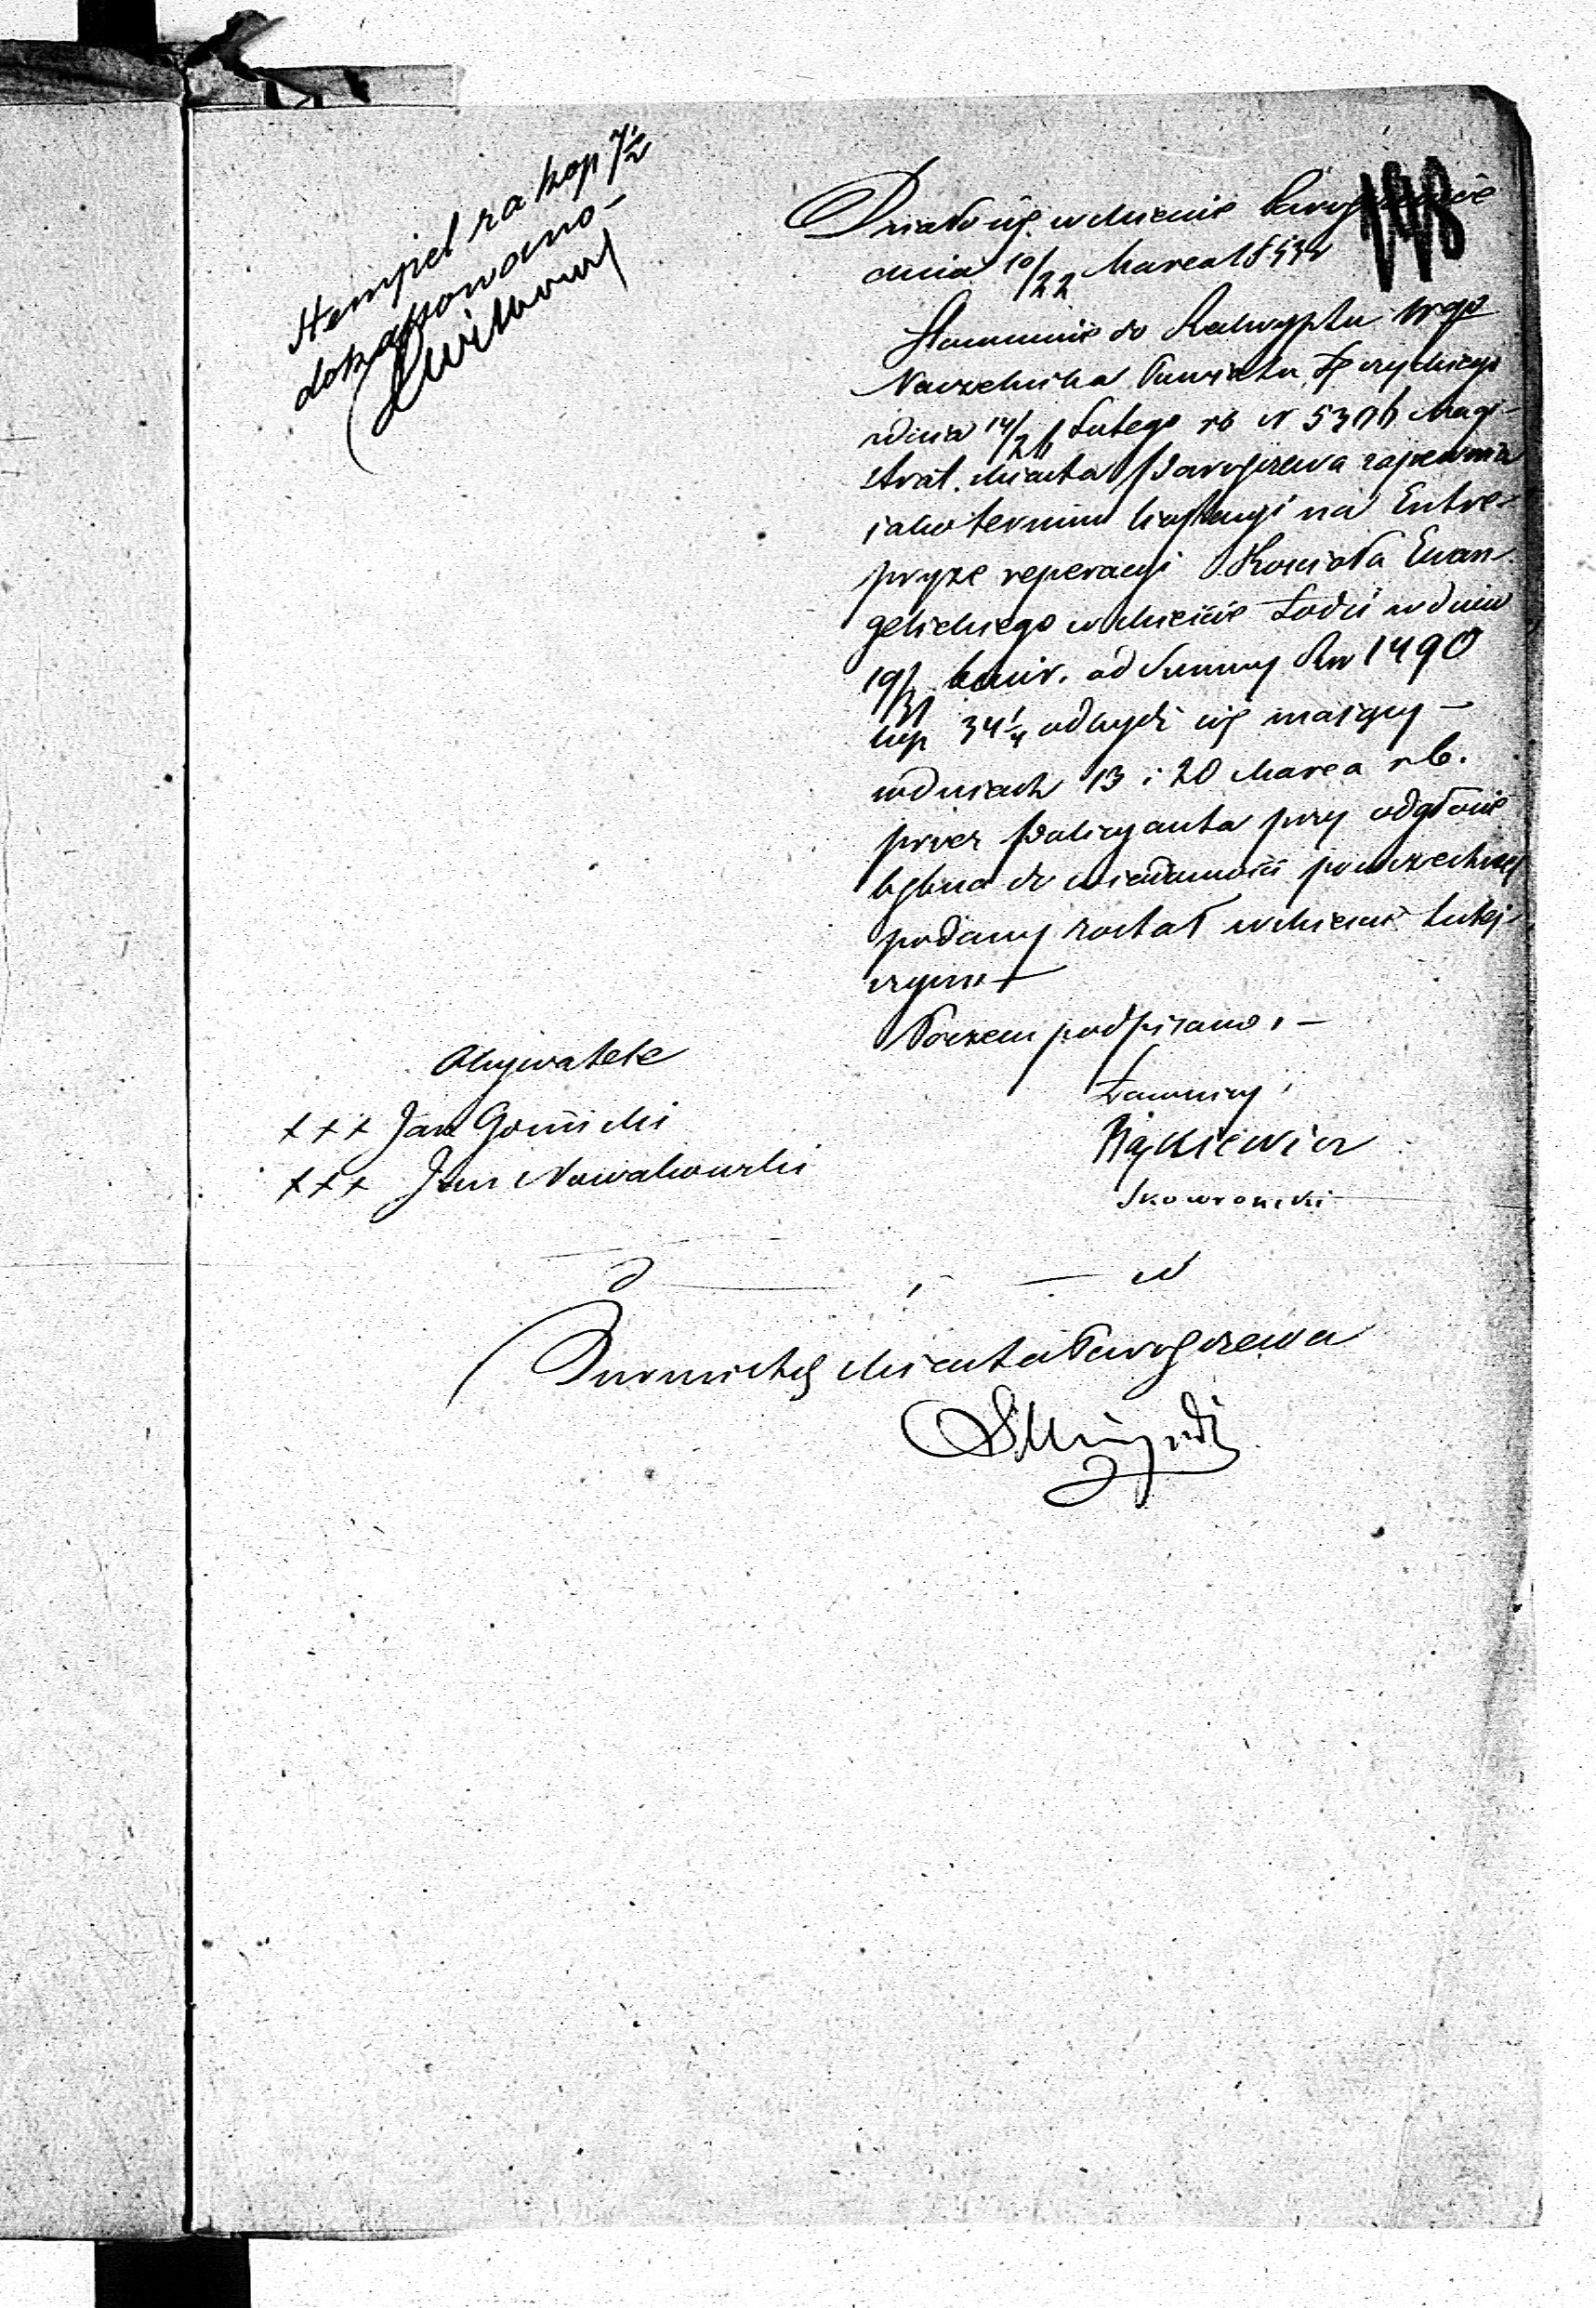 Stempel za kop 7½
dokassowano –
148
Działo się w Mieście Parzęczewie
dnia 10/22 Marca 1853 r
Stosownie do Reskryptu Wgo
Naczelnika Powiatu Łęczyckiego
z dnia 14/26 Lutego rb N 5306 Magi-
strat Miasta Parzęczewa zapewnia
iako termin licytacyi na Entre-
pryze reperacyi Kościoła Ewan-
gelickiego w Mieście Łodzi w dniu
19/31 b. mir. od Summy Rsr 1490
kop 34¼ odbydź się maiący –
w dniach 13 i 20 Marca r b.
przez Policyanta przy odgłosie
bębna do wiadomości powszechney
podany został w Mieście tutey-
szym –
Poczem podpisano. –
Obywatele
Ławnicy
+++ Jan Goński
+++ Jan Nowakowski
Piąkiewicz
Skowroński
Burmistrz Miasta Parzęczewa